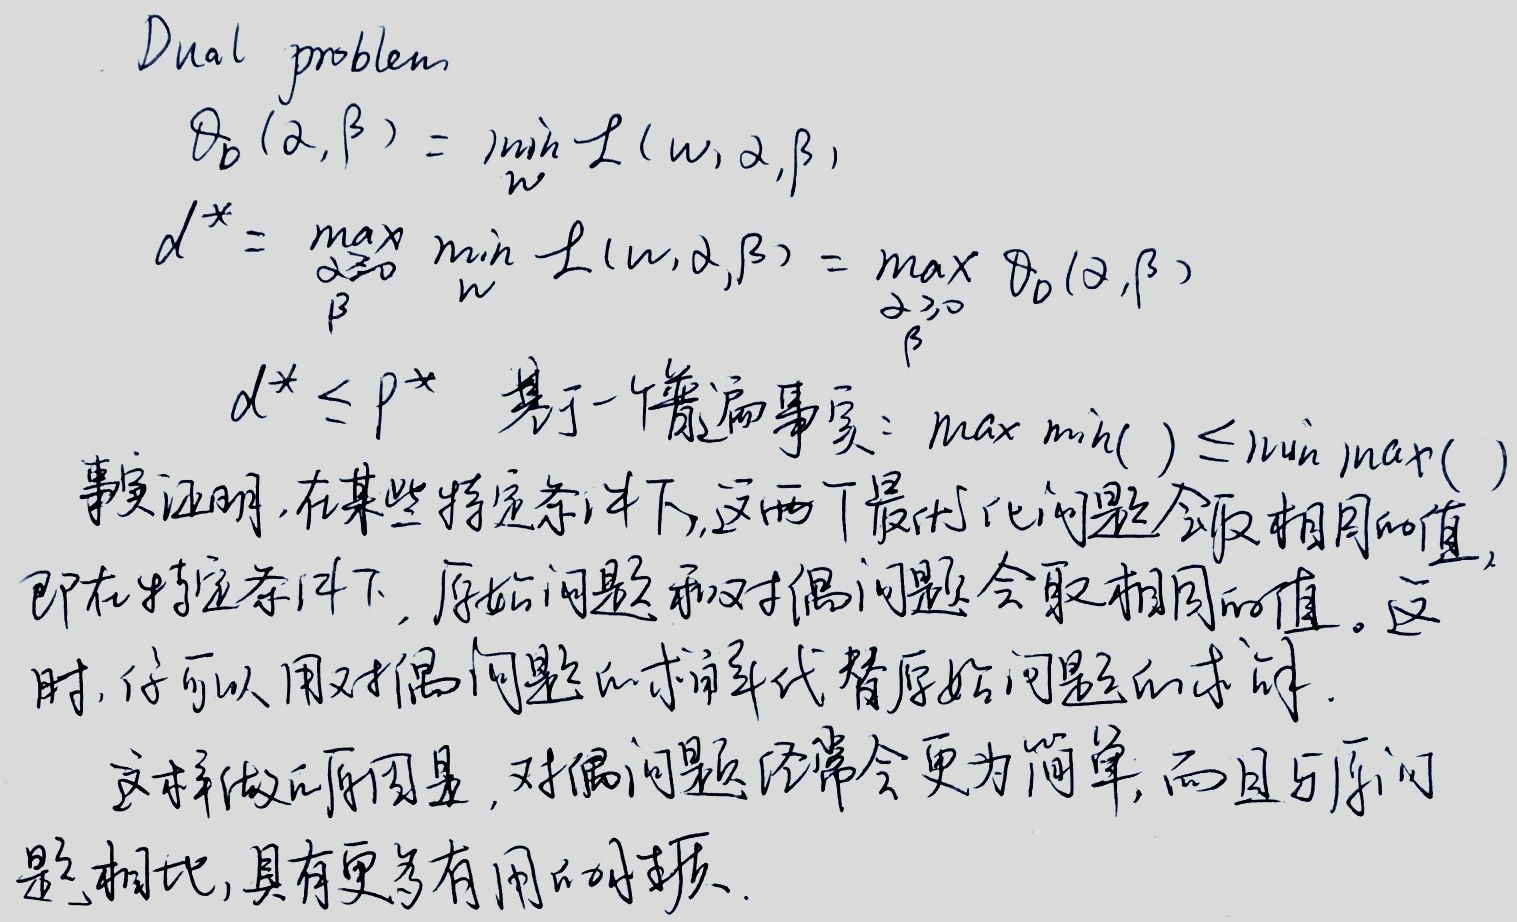 Dual problem
θ_D(α,β) = min_w L(w,α,β)
d* = max_{α≥0,β} min_w L(w,α,β) = max_{α≥0,β} θ_D(α,β)
d* ≤ p* 基于一个普遍事实: max min( ) ≤ min max( )
事实证明,在某些特定条件下,这两个最优化问题会取相同的值,
即在特定条件下,原始问题和对偶问题会取相同的值。这
时,你可以用对偶问题的求解代替原始问题的求解.
这样做的原因是,对偶问题经常会更为简单,而且与原问
题相比,具有更多有用的性质.